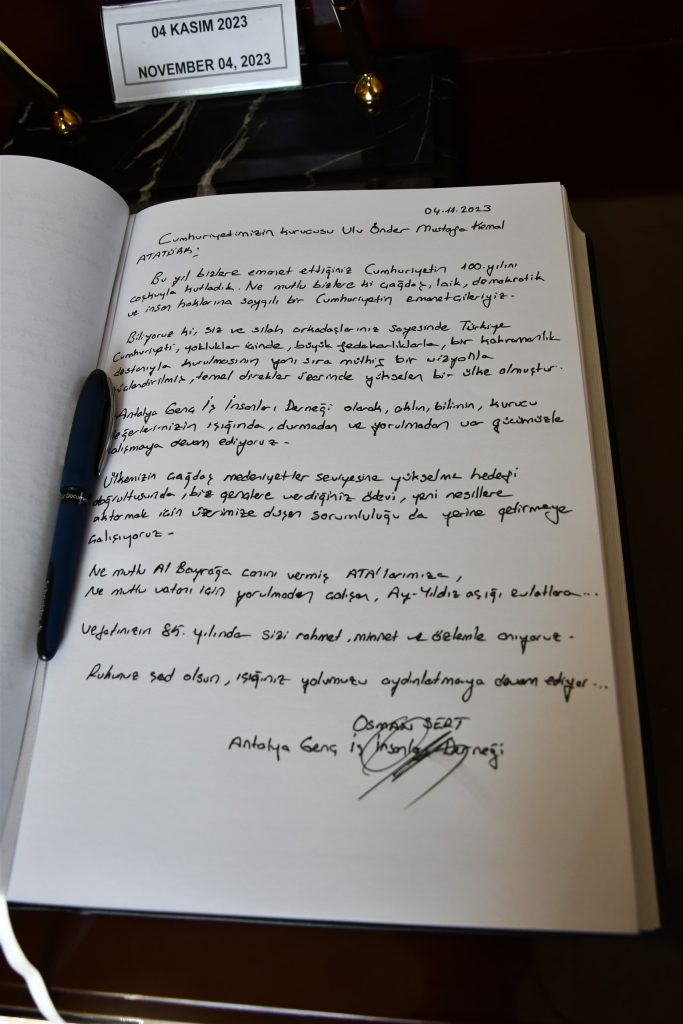 04 KASIM 2023
NOVEMBER 04, 2023
04.11.2023
Cumhuriyetimizin kurucusu Ulu Önder Mustafa Kemal
ATATÜRK;
Bu yıl bizlere emanet ettiğiniz Cumhuriyetin 100. yılını
coşkuyla kutladık. Ne mutlu bizlere ki çağdaş, laik, demokratik
ve insan haklarına saygılı bir Cumhuriyetin emanetçileriyiz.
Biliyoruz ki, siz ve silah arkadaşlarınız sayesinde Türkiye
Cumhuriyeti, yokluklar içinde, büyük fedakarlıklarla, bir kahramanlık
destanıyla kurulmasının yanı sıra müthiş bir vizyonla
güçlendirilmiş, temel direkler üzerinde yükselen bir ülke olmuştur.
Antalya Genç İş İnsanları Derneği olarak, aklın, bilimin, kurucu
değerlerinizin ışığında, durmadan ve yorulmadan var gücümüzle
çalışmaya devam ediyoruz.
Ülkemizin çağdaş medeniyetler seviyesine yükselme hedefi
doğrultusunda, biz gençlere verdiğiniz ödevi, yeni nesillere
aktarmak için üzerimize düşen sorumluluğu da yerine getirmeye
çalışıyoruz.
Ne mutlu Al Bayrağa canını vermiş ATA'larımıza,
Ne mutlu vatanı için yorulmadan çalışan, Ay-Yıldız aşığı evlatlara...
Vefatınızın 85. yılında sizi rahmet, minnet ve özlemle anıyoruz.
Ruhunuz şad olsun, ışığınız yolumuzu aydınlatmaya devam ediyor...
OSMAN SERT
Antalya Genç İş İnsanları Derneği